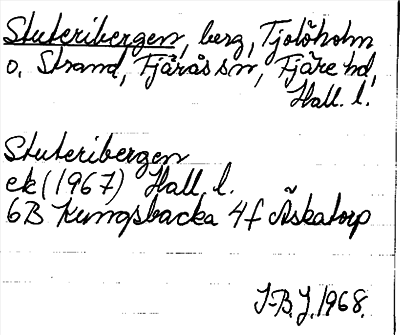 Stuteribergen, berg, Tjolöholm
o. Strand, Fjärås sn, Fjäre hd,
Hall. l.
Stuteribergen
ek (1967) Hall. l.
6B Kungsbacka 4f Äskatorp
J-B.J. 1968.